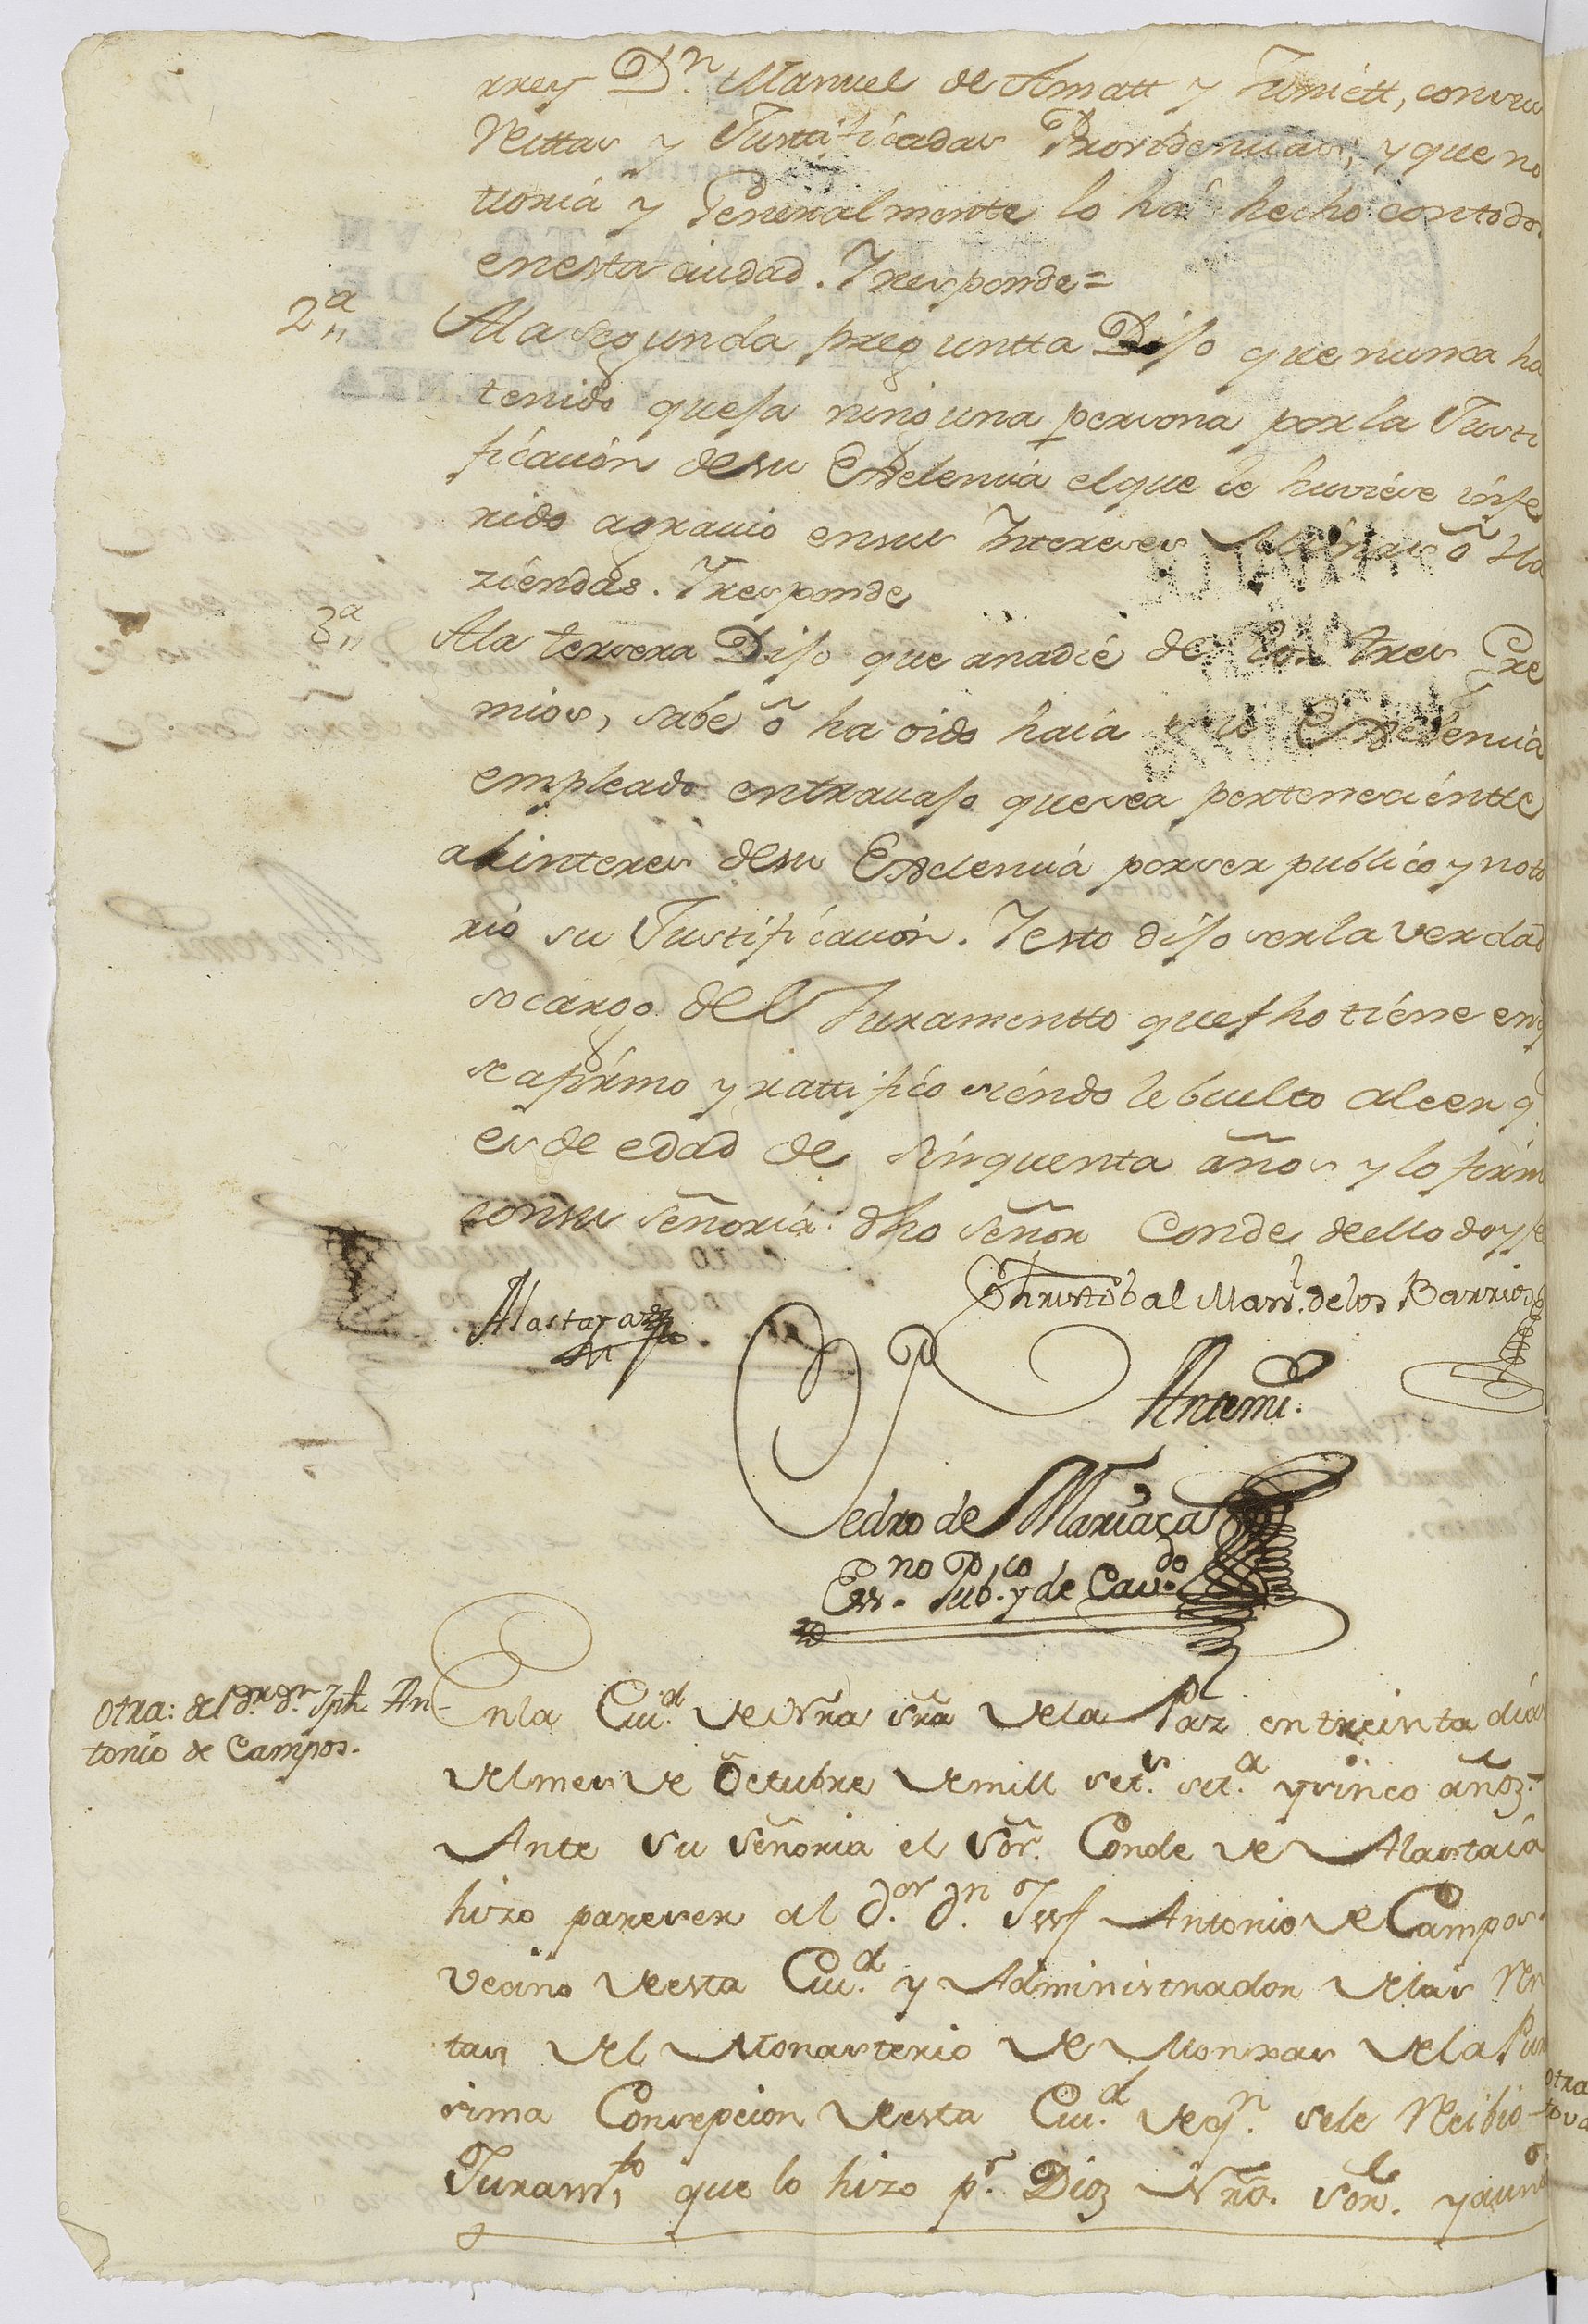 rrey Dn. Manuel de Amatt y Juniett, con sus
Rectas y Justificadas Providencias, y que no
ttoria y Generalmente lo há hecho con todos
en esta ciudad. Y responde=
2a,, A la segunda preguntta Dijo que nunca ha
tenido queja ninguna persona por la Justi
ficación de su Exelencia el que le huviése infe
rido agravio en sus Intereses ô Ha
ziéndas. Y responde
3a,, A la tersera Dijo que a nadie de los tres Gre
mios, sabe õ ha oido haia su Exelencia
empleado en travajo que sea pertenecientte
al interes de su Exelencia por ser publico y noto
rio su Justificación. Y esto dijo ser la verdad
so cargo del Juramentto que fho tiéne en q
se afirmo y rattifico siéndole buelto a leer q
es de edad de sinquenta años y lo firm
con su señoria dho señor Conde de ello doy fe
Christobal Marl. de los Barrios
Alastaya
Antemi.
Pedro de Mariaca
Essno. Pubco. y de Cavdo.
Otra: del Dr. Dn. Jph. An
tonio de Campos.
En la Ciud. de Nra sra de la Paz en treinta dias
del mes de Octubre de mill sets. seta. y sinco años.
Ante su señoria el Sor. Conde de Alastaia
hizo pareser al Dor. Dn. Jossf Antonio de Campos
vecino de esta Ciud. y Administrador de las Ren
tas del Monasterio de Monxas de la Puri
sima Consepcion de esta Ciud. de qn. se le Recibio
Juramto, que lo hizo pr. Dios Nro. Sor. y a una
otra